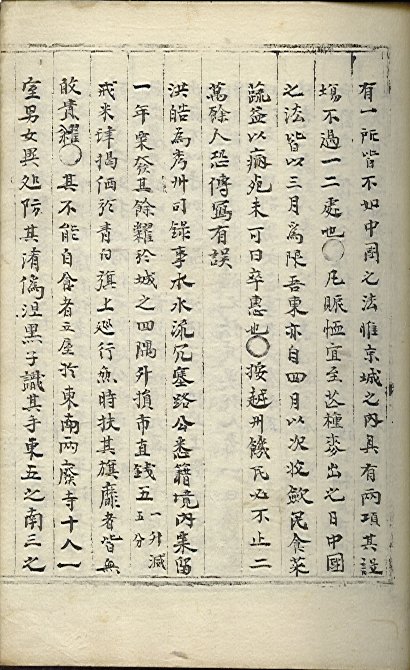 有一所皆不如中國之法惟京城之內具有兩項其設
場不過一二處也○凡賑恤宜至芒種麥出之日中國
之法皆以三月爲限吾東亦自四月以次收歛民食菜
蔬益以病死未可曰卒惠也○按越州饑民必不止二
萬餘人恐傳寫有誤
洪皓爲秀州司錄事水水流冗塞路公悉籍境內粟留
一年粟發其餘糶於城之四隅升損市直錢五一升減五分
戒米肆揭価於青白旗上巡行無時扶其旗靡者皆無
敢貴糶○其不能自食者立屋於東南兩廢寺十八一
室男女異處防其淆僞涅黑子識其手東五之南三之